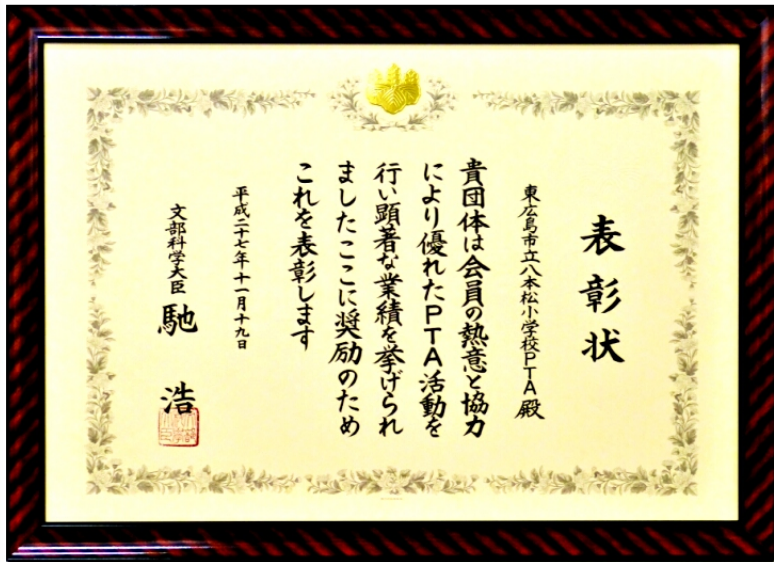 表彰状
東広島市立八本松小学校PTA殿
貴団体は会員の熱意と協力
により優れたPTA活動を
行い顕著な業績を挙げられ
ましたここに奨励のため
これを表彰します
平成二十七年十一月十九日
文部科学大臣 馳 浩